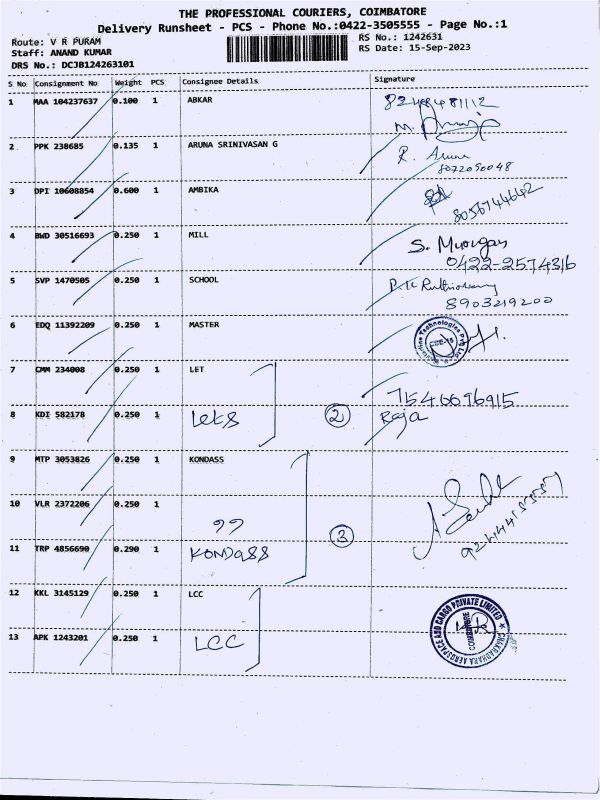 THE PROFESSIONAL COURIERS, COIMBATORE
Delivery Runsheet - PCS - Phone No.:0422-3505555 - Page No.:1
Route: V R PURAM
Staff: ANAND KUMAR
DRS No.: DCJB124263101
RS No.: 1242631
RS Date: 15-Sep-2023
S No Consignment No Weight PCS Consignee Details Signature
1 MAA 104237637 0.100 1 ABKAR
2 PPK 238685 0.135 1 ARUNA SRINIVASAN G R. Aruna
8072090048
3 DPI 10608854 0.600 1 AMBIKA
8056744642
4 BWD 30516693 0.250 1 MILL S. Murugan
0422-2574316
5 SVP 1470505 0.250 1 SCHOOL
8903219200
6 EDQ 11392209 0.250 1 MASTER
7 CMM 234008 0.250 1 LET
7546696915
8 KDI 582178 0.250 1 Lets 2 Raja
9 MTP 3053826 0.250 1 KONDASS
10 VLR 2372206 0.250 1 ״
3
11 TRP 4856690 0.290 1 KONDASS
12 KKL 3145129 0.250 1 LCC
13 APK 1243201 0.250 1 LCC
CHAKRADHARA AEROSPACE AND CARGO PRIVATE LIMITED
COIMBATORE